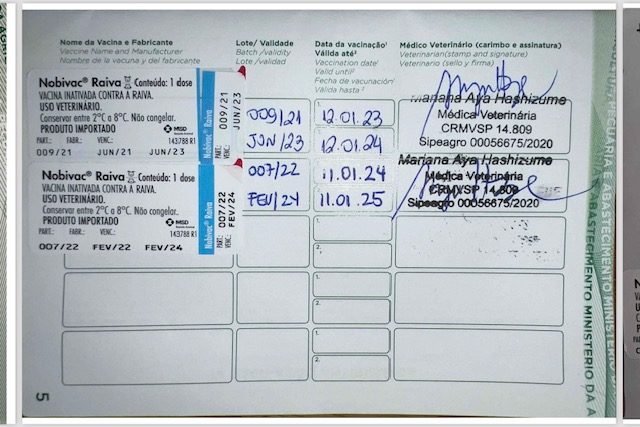 Nome da Vacina e Fabricante
Vaccine Name and Manufacturer
Nombre de la vacuna y del fabricante
Lote/ Validade
Batch /validity
Lote /validad
Data da vacinação¹
Válida até²
Vaccination date¹
Valid until²
Fecha de vacunación¹
Válida hasta ²
Médico Veterinário (carimbo e assinatura)
Veterinarian(stamp and signature)
Veterinario (sello y firma)
Nobivac® Raiva Conteúdo: 1 dose
VACINA INATIVADA CONTRA A RAIVA.
USO VETERINÁRIO.
Conservar entre 2°C a 8°C. Não congelar.
PRODUTO IMPORTADO
MSD
143788 R1
PART.: FABR.: VENC.:
009/21 JUN/21 JUN/23
Nobivac® Raiva
PART.: 009/21
VENC.: JUN/23
009/21
JUN/23
1.
12.01.23
2.
12.01.24
Mariana Aya Hashizume
Médica Veterinária
CRMVSP 14.809
Sipeagro 00056675/2020
Nobivac® Raiva Conteúdo: 1 dose
VACINA INATIVADA CONTRA A RAIVA.
USO VETERINÁRIO.
Conservar entre 2°C a 8°C. Não congelar.
PRODUTO IMPORTADO
MSD
143788 R1
PART.: FABR.: VENC.:
007/22 FEV/22 FEV/24
Nobivac® Raiva
PART.: 007/22
VENC.: FEV/24
007/22
FEV/24
11.01.24
11.01.25
Mariana Aya Hashizume
Médica Veterinária
CRMVSP 14.809
Sipeagro 00056675/2020
1.
2.
1.
2.
1.
2.
5
ABASTECIMENTO MINISTERIO DA A
PECUÁRIA E ABASTECIMENTO MINISTÉRIO